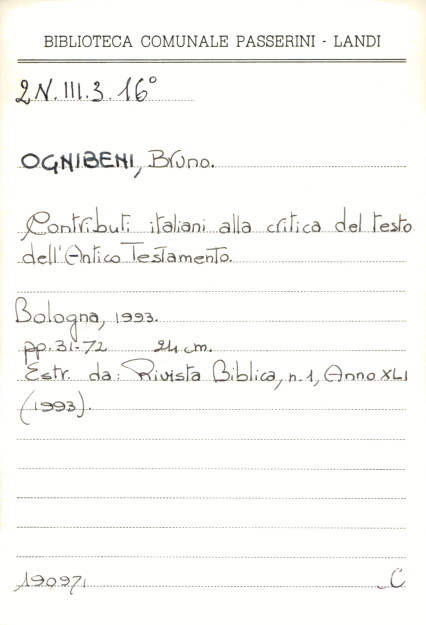 BIBLIOTECA COMUNALE PASSERINI - LANDI
2N. III. 3. 16°
OGNIBENI, Bruno.
Contributi italiani alla critica del testo
dell'Antico Testamento.
Bologna, 1993.
pp. 31-72 24 cm.
Estr. da: Rivista Biblica, n. 1, Anno XLI
(1993).
190971
C